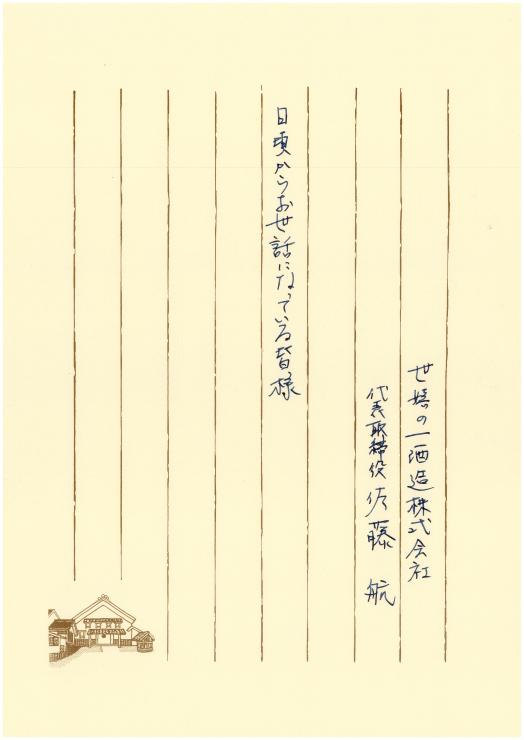 世嬉の一酒造株式会社
代表取締役 佐藤 航
日頃からお世話になっている皆様